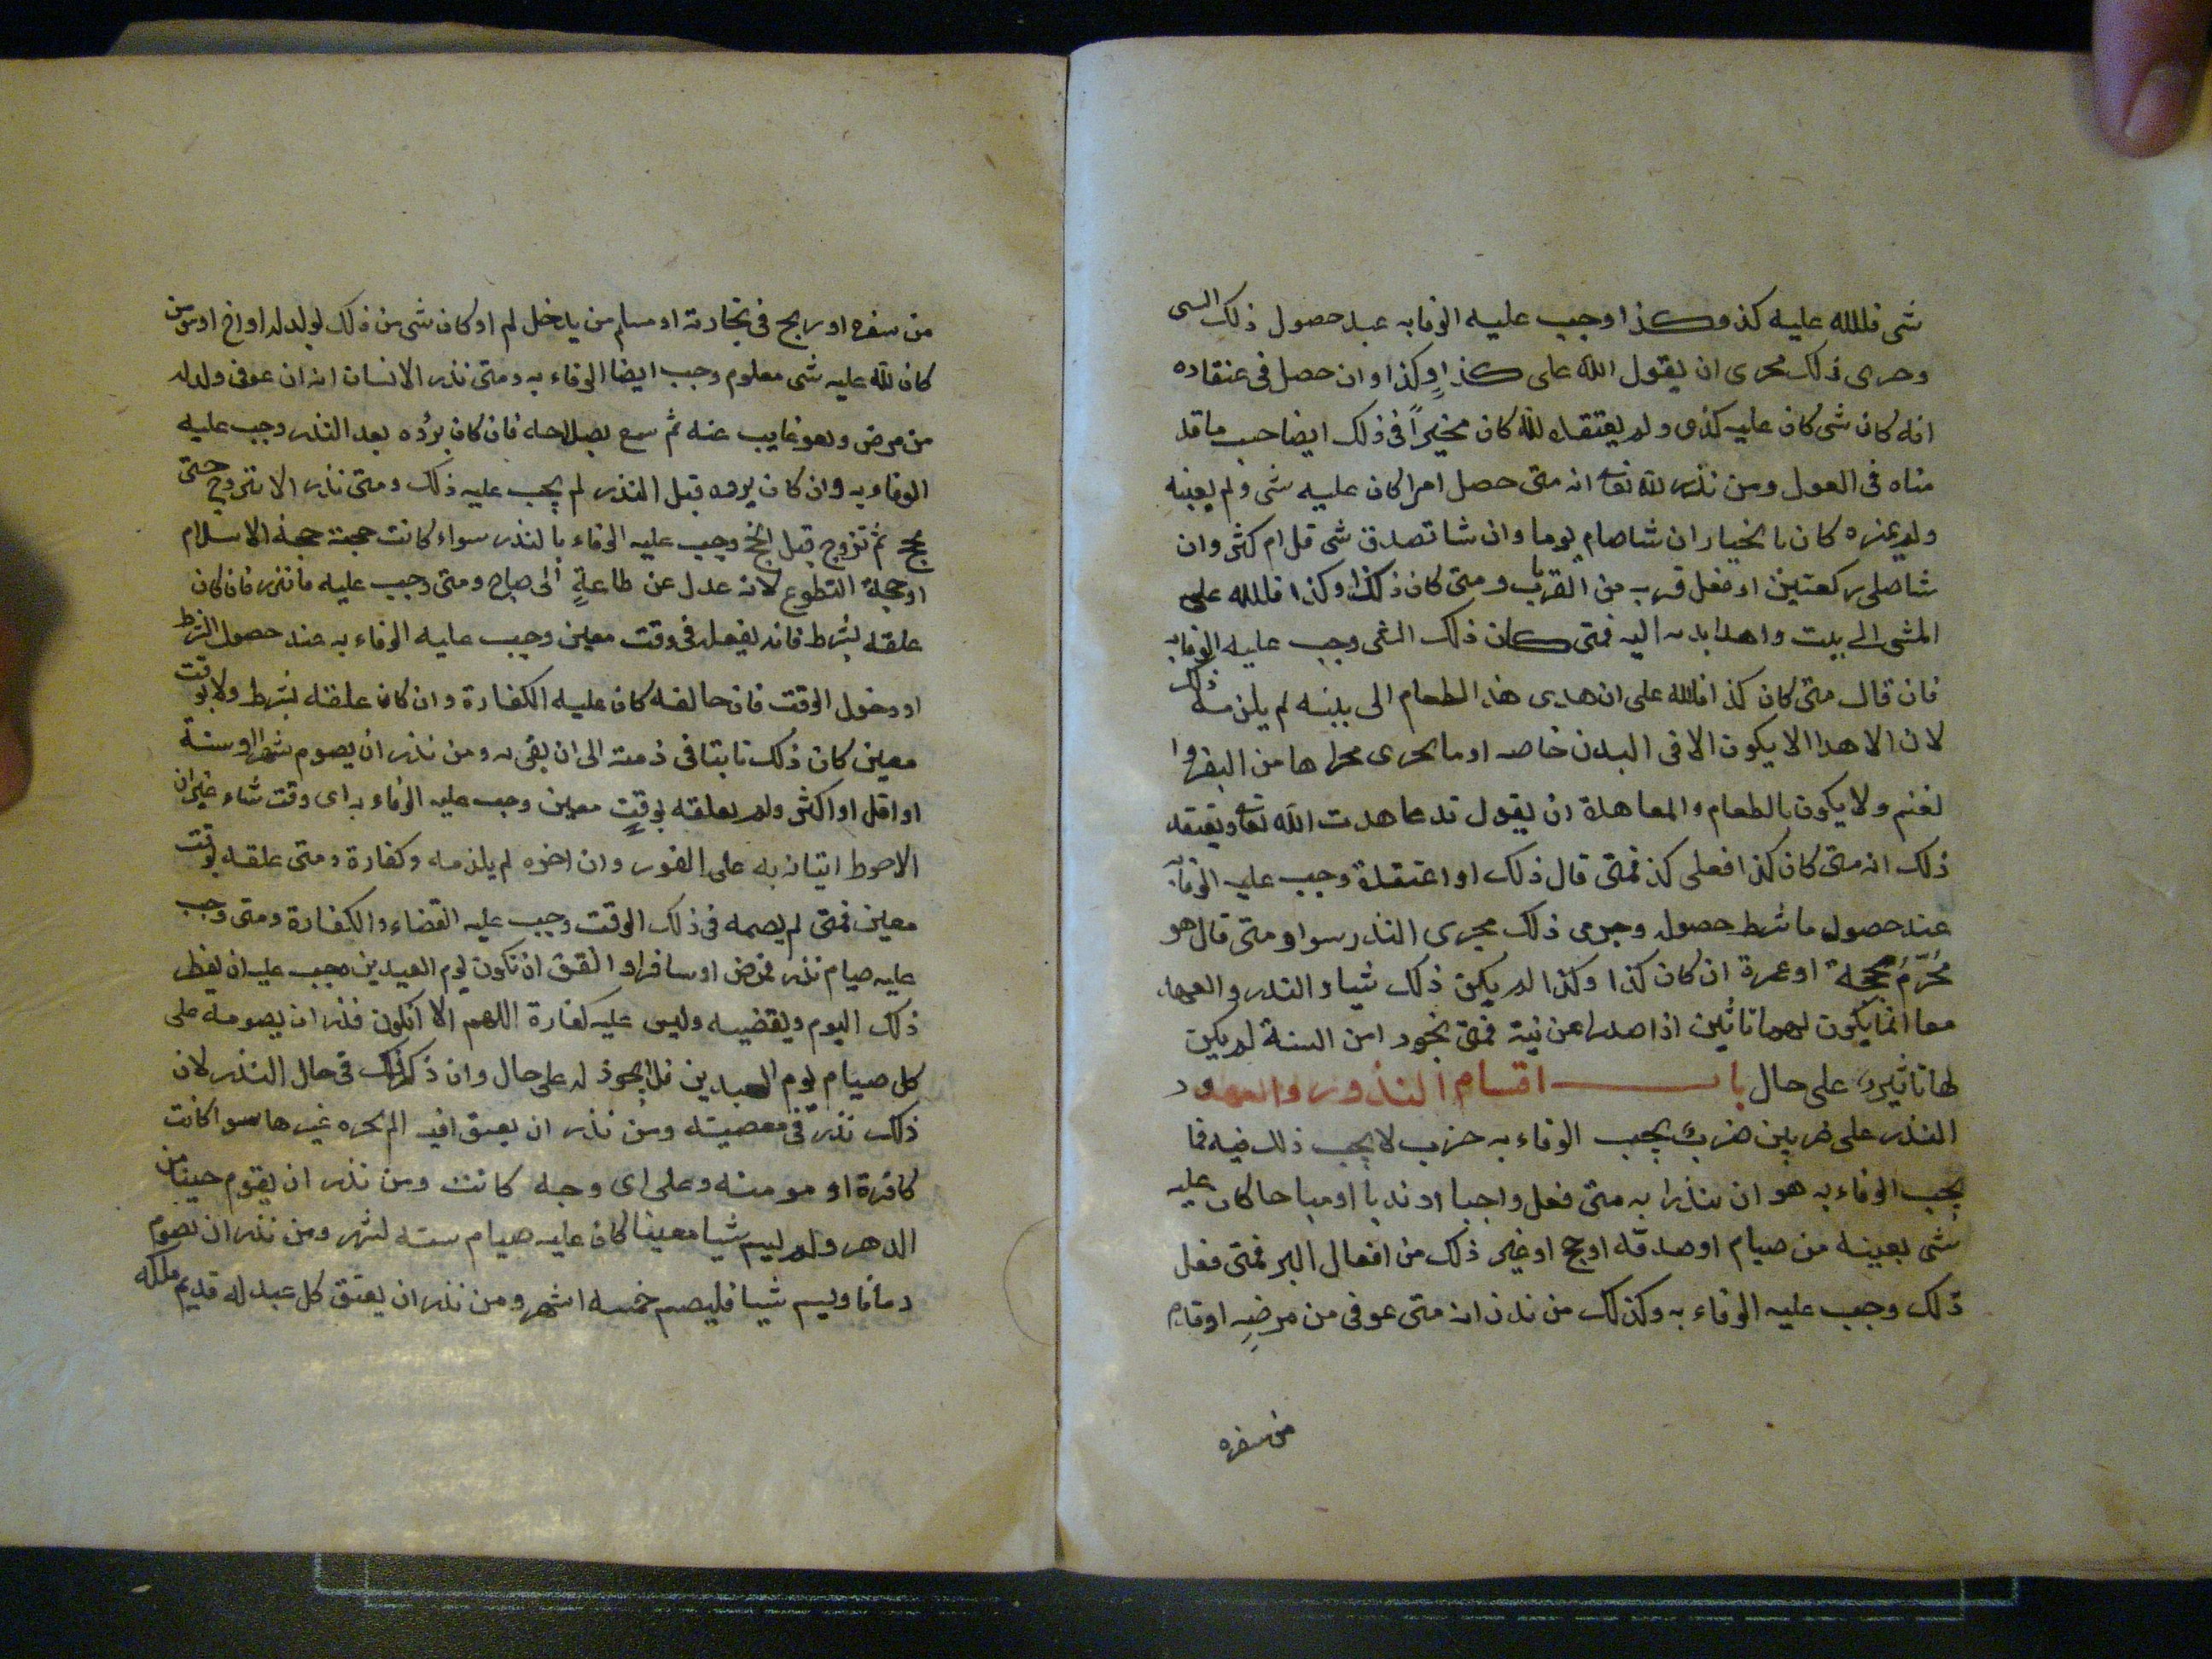 شى فلله عليه كذ وكذا وجب عليه الوفا به عند حصول ذلك الشى
وجرى ذلك مجرى ان يقول الله على كذا وكذا وان حصل فى عتقاده
انه كان شى كان عليه كذى ولم يعتقد لله كان مخيراً فى ذلك ايضا حسب ما قد
مناه فى القول ومن نذر لله تعا انه متى حصل امرا كان عليه شى ولم يعينه
ولم يميزه كان بالخيار ان شا صام يوما وان شا تصدق شى قل ام كثر وان
شا صلى ركعتين او فعل قرب من القربات ومتى كان ذلك كذا وكذا فلله على
المشى الى بيت واهدا بدنه اليه فمتى كان ذلك الشى وجب عليه الوفا به
فان قال متى كان كذا فلله على ان هدى هذ الطعام الى بيته لم يلزمه ذلك
لان الاهدا لا يكون الا فى البدن خاصه او ما يجرى مجراها من البقر وا
لغنم ولا يكون بالطعام والمعاهدة ان يقول قد عاهدت الله تعا ويعتقد
ذلك انه متى كان كذا فعلى كذ فمتى قال ذلك او اعتقدة وجب عليه الوفا به
عند حصول ما شرط حصوله وجرى ذلك مجرى النذر سوا ومتى قال هو
مُحْرِمُ بحجة او عمرة ان كان كذا وكذا لم يكن ذلك شيا والنذر والعهد
معا انما يكون لهما تاثين اذا صدرا عن نية فمتى تجرد ا من السنة لم يكن
لها تاثير على حال باب اقسام النذور والعهود
النذر على ضربين ضرب يجب الوفاء به ضرب لا يجب ذلك فيه فما
يجب الوفاء به هو ان ينذرا به متى فعل واجبا او ندبا او مباحا كان عليه
شى بعينه من صيام او صدقه او حج او غير ذلك من افعال البر فمتى فعل
ذلك وجب عليه الوفاء به وكذلك من نذر انه متى عوفى من مرضِهِ او قدم
من سفره
من سفره او ربح فى تجارته او سلم من يدخل لم او كان شى من ذلك لولد له او اخ او من
كان لله عليه شى معلوم وجب ايضا الوفاء به ومتى نذر الانسان انه ان عوفى ولد له
من مرض وهو غايب عنه ثم سمع بصلاحه فان كان برؤه بعد النذر وجب عليه
الوفاء به وان كان بروه قبل النذر لم يجب عليه ذلك ومتى نذر الا يتزوج حتى
يحج ثم تزوج قبل الحج وجب عليه الوفاء بالنذر سواء كانت حجته حجة الاسلام
او حجة التطوع لانه عدل عن طاعةٍ الى مباح ومتى وجب عليه ما نذر فان كان
علقه بشرط فانه يفعل فى وقت معين وجب عليه الوفاء به عند حصول الشرط
او دخول الوقت فان خالفه كان عليه الكفارة وان كان علقه بشرط ولا بوقت
معين كان ذلك ثابتا فى ذمته الى ان يفى به ومن نذر ان يصوم شهرا او سنة
او اقل او اكثر ولم يعلقه بوقتٍ معين وجب عليه الوفاء به اى وقت شاء غير ان
الاحوط اتيانه به على الفور وان اخره لم يلزمه وكفارة ومتى علقه بوقت
معين فمتى لم يصمه فى ذلك الوقت وجب عليه القضاء والكفارة ومتى وجب
عليه صيام نذر فمرض او سافر او اتفق ان تكون يوم العيدين وجب عليه ان يفطر
ذلك اليوم ويقضيه وليس عليه كفارة اللهم الا ان يكون نذر ان يصومه على
كل صيام يوم العيدين فلا يجوز له على حال وان ذكر ذلك فى حال النذر لان
ذلك نذر فى معصيته ومن نذر ان يعتق افيه الم يجزه غيرها سوا كانت
كافرة او مومنه وعلى اى وجه كانت ومن نذر ان يقوم حينا من
الدهر ولم يسم شيا معينا كان عليه صيام سته اشهر ومن نذر ان يصوم
زمانا ويسم شيا فليصم خمسه اشهر ومن نذر ان يعتق كل عبد له قديم ملكه